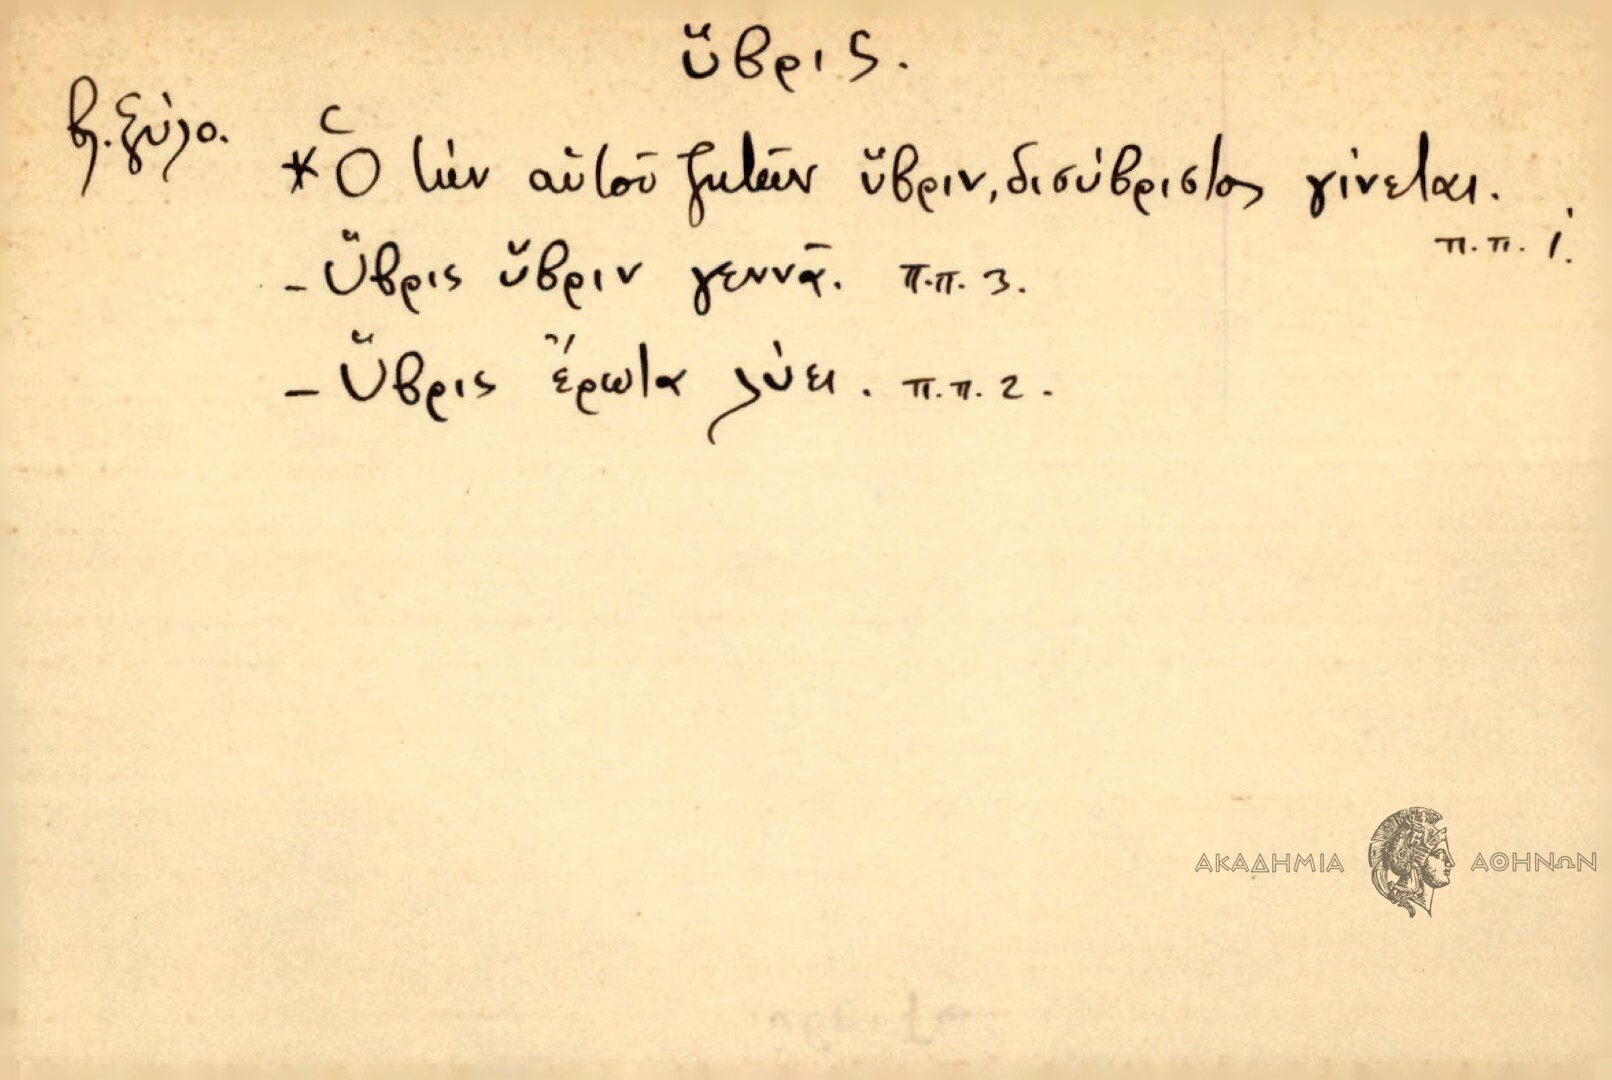 ὕβρις.
βλ. ξύλο.
* Ὁ τὴν αὑτοῦ ζητῶν ὕβριν, δισύβριστος γίνεται.
π.π. 1.
- Ὕβρις ὕβριν γεννᾷ. π.π. 3.
- Ὕβρις ἔρωτα λύει. π.π. 2.
ΑΚΑΔΗΜΙΑ ΑΘΗΝΩΝ